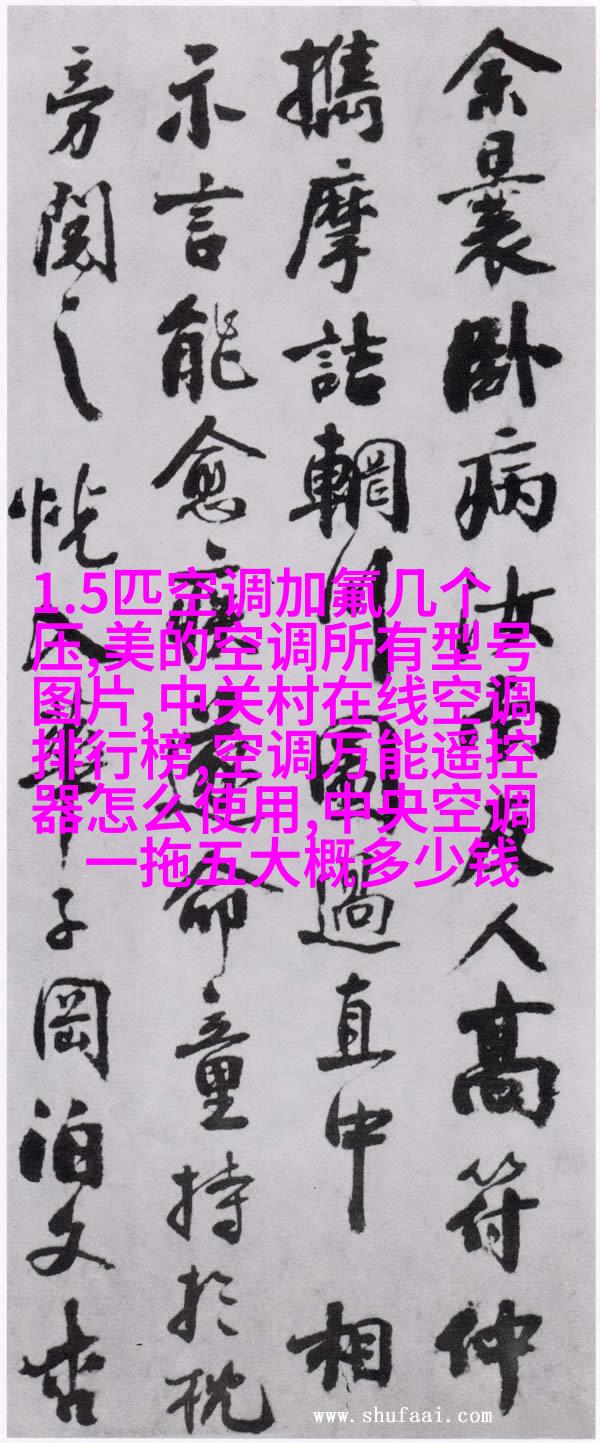 余曩卧病汝南友人高符仲
攜摩詰輞川圖過直中相
示言能愈疾遂命童持於枕
旁閱之恍入華子岡泊文杏
1.5匹空调加氟几个
压,美的空调所有型号
图片,中关村在线空调
排行榜,空调万能遥控
器怎么使用,中央空调
一拖五大概多少钱
www.shufaai.com